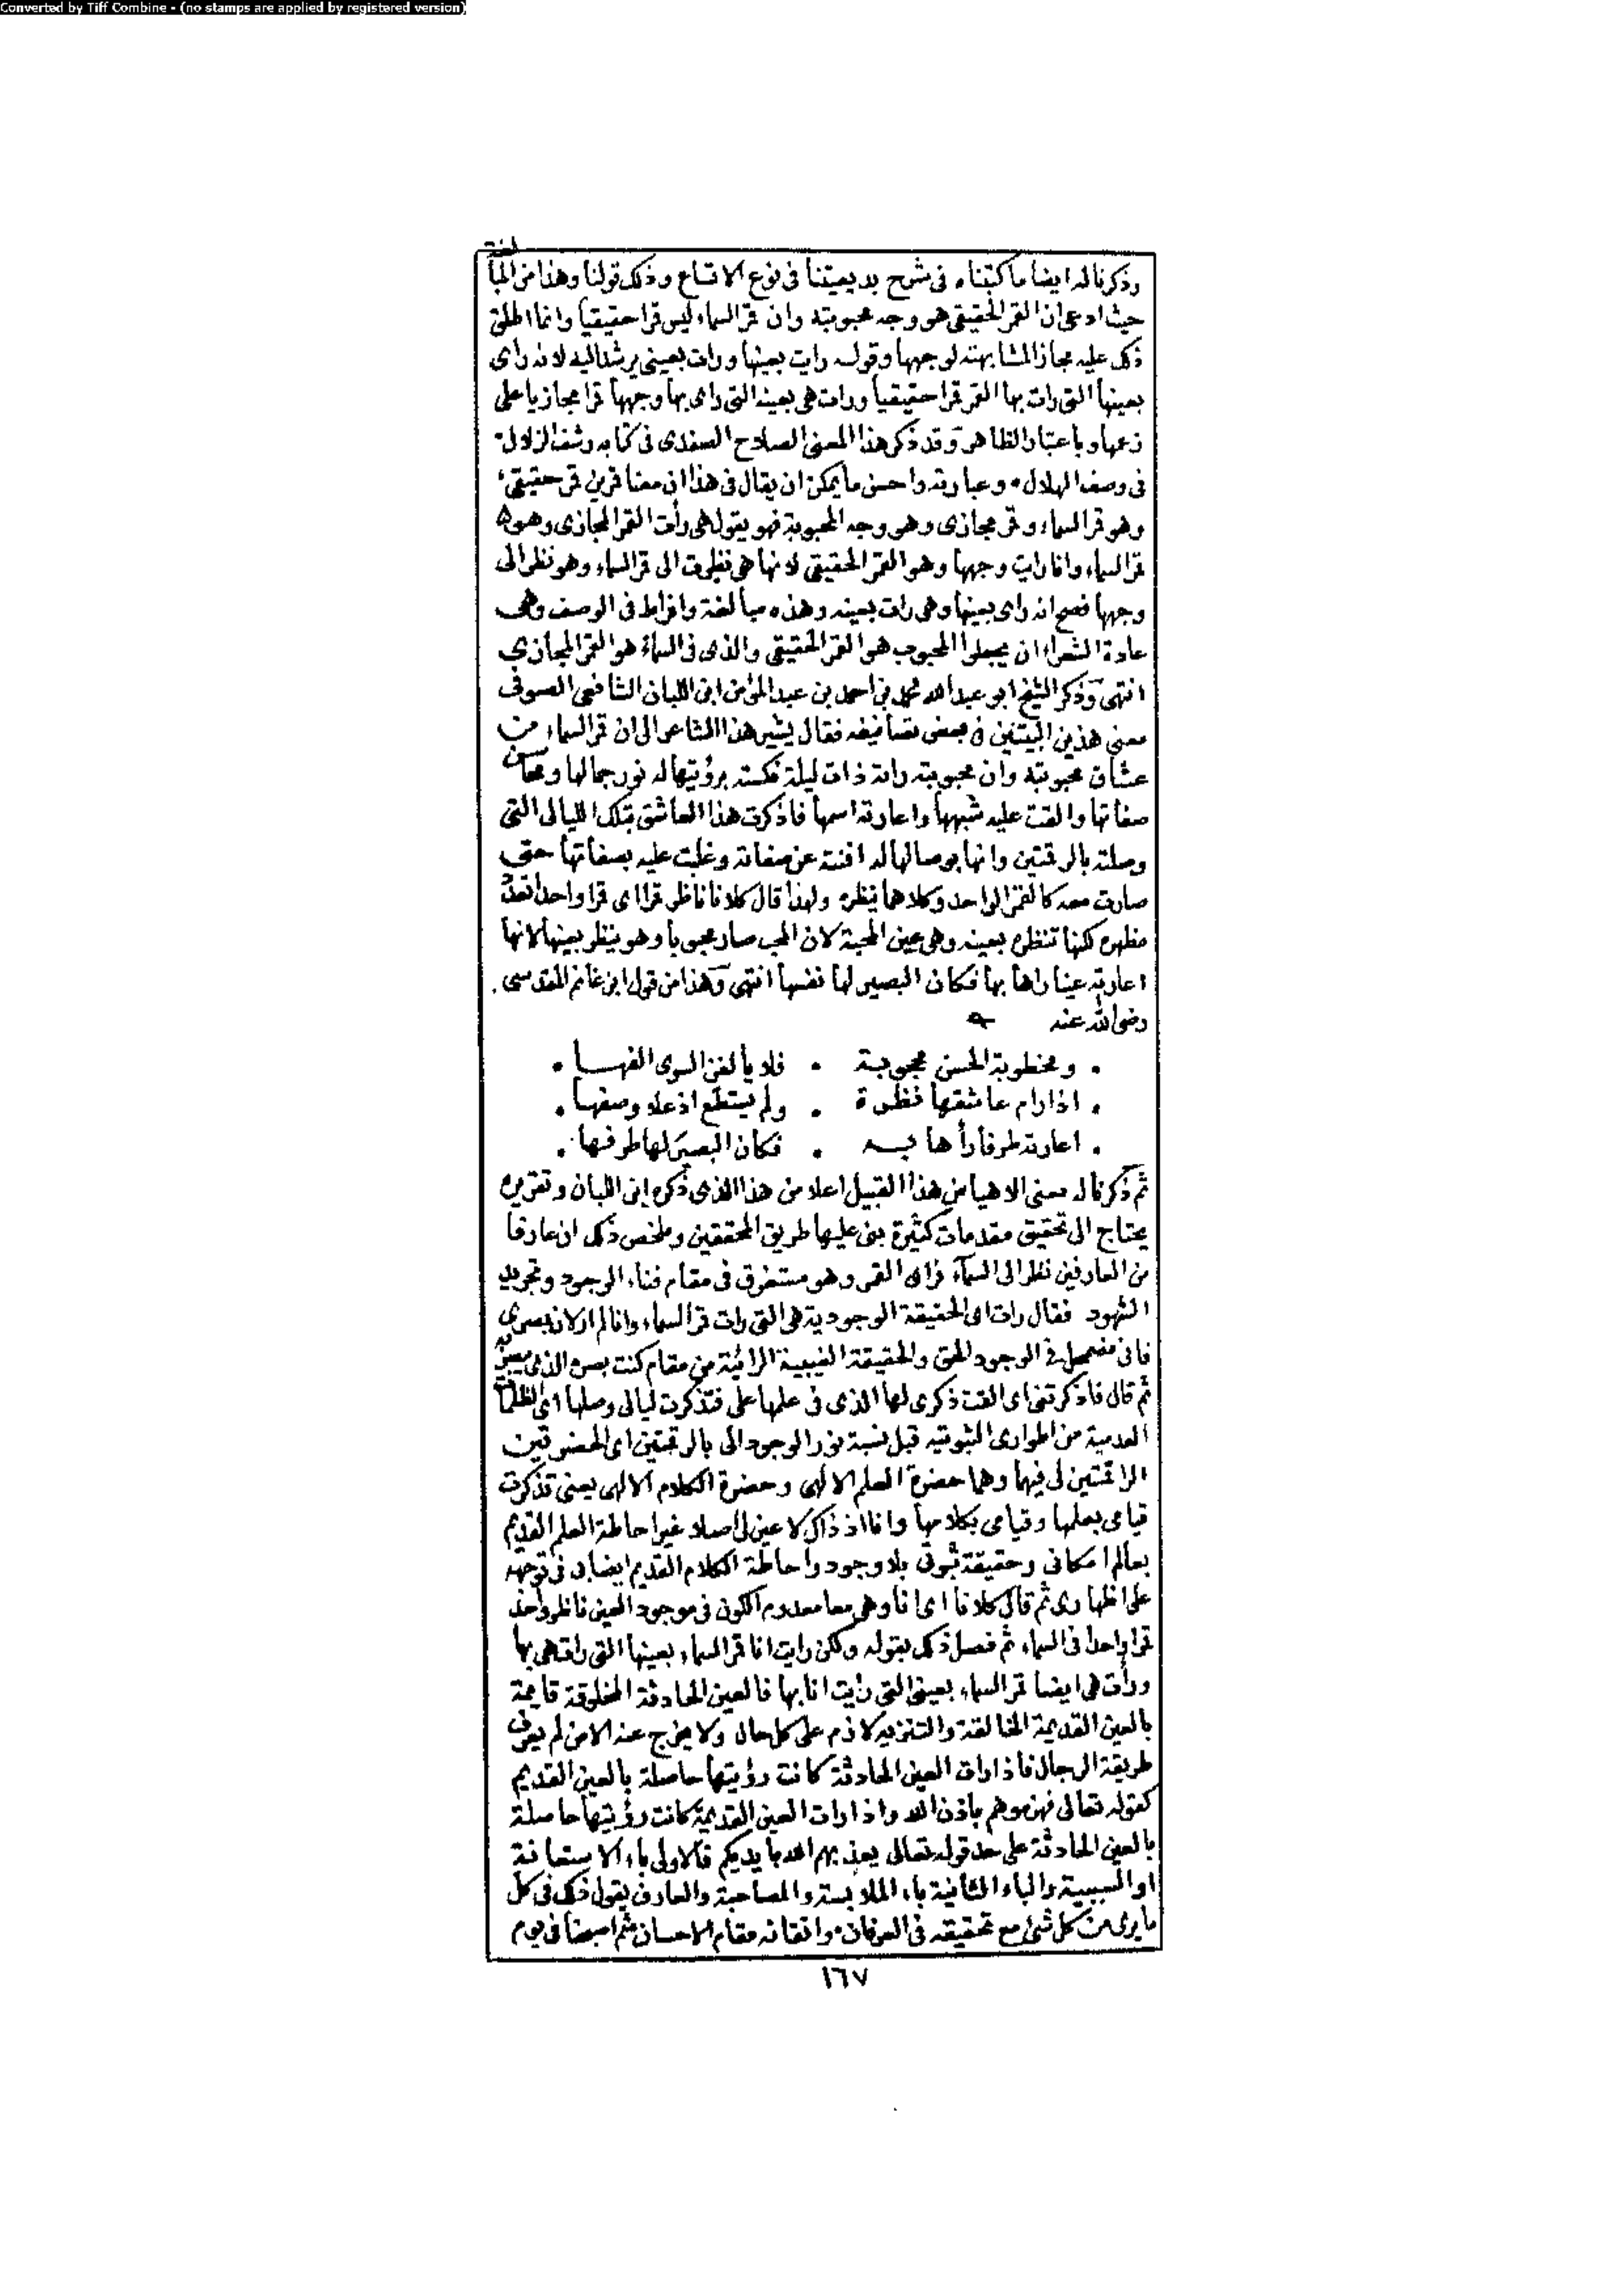 Converted by Tiff Combine - (no stamps are applied by registered version)
وذكرنا له ايضا ما كتبناه في شرح بديعيتنا في نوع الاتساع وذلك قولنا وهذا من المبالغة
حيث ادعى ان القمر الحقيقي هو وجه محبوبته وان قمر السماء ليس قمرا حقيقيا وانما اطلق
ذلك عليه مجازا لمشابهته لوجهها وقوله رايت بعينها ورات بعيني يرشد اليه لانه راى
بعينها التي رات بها القمر قمرا حقيقيا ورات هي بعينه التي راى بها وجهها قمرا مجازيا على
زعمها وباعتبار الظاهر وقد ذكر هذا المعنى الصلاح الصفدي في كتابه رشف الزلال
في وصف الهلال وعبارته واحسن ما يمكن ان يقال في هذا ان معنا قمرين قمر حقيقي
وهو قمر السماء وقمر مجازي وهو وجه المحبوبة فهو يقول هي رأت القمر المجازي وهو
قمر السماء وانا رايت وجهها وهو القمر الحقيقي لانها هي نظرت الى قمر السماء وهو نظر الى
وجهها فصح انه راى بعينها وهي رات بعينه وهذه مبالغة وافراط في الوصف وهي
عادة الشعراء ان يجعلوا المحبوب هو القمر الحقيقي والذي في السماء هو القمر المجازي
انتهى وذكر الشيخ ابو عبد الله محمد بن احمد بن عبد المؤمن ابن اللبان الشافعي الصوفي
معنى هذين البيتين في بعض تصانيفه فقال يشير هذا الشاعر الى ان قمر السماء من
عشاق محبوبته وان محبوبته راته ذات ليلة فكسته برؤيتها له نور جمالها ومحاسن
صفاتها والقت عليه شبهها واعارته اسمها فاذكرت هذا العاشق بتلك الليالي التي
وصلته بالرقمتين وانها بوصالها له افنته عن صفاته وغلبت عليه بصفاتها حتى
صارت معه كالقمر الواحد وكلاهما ينظره ولهذا قال كلانا ناظر قمرا اى قمرا واحدا تعدد
مظهره لكنها تنظره بعينه وهي عين المحبة لان المحب صار محبوبا وهو ينظر بعينها لانها
اعارته عينا راها بها فكان البصير لها نفسها انتهى وهذا من قول ابن غانم المقدسي
رضي الله عنه
ومخطوبة الحسن محجوبة . فلا يألفن السوى الفها
اذا رام عاشقها نظرة . ولم يستطع اذ علا وصفها
اعارته طرفا رأها به . فكان البصير لها طرفها
ثم ذكرنا له معنى الاهيا من هذا القبيل اعلا من هذا الذي ذكره ابن اللبان وتقريره
يحتاج الى تحقيق مقدمات كثيرة بنى عليها طريق المحققين وملخص ذلك ان عارفا
من العارفين نظر الى السماء فراى القمر وهو مستغرق في مقام فناء الوجود وتجريد
الشهود فقال رات اى الحقيقة الوجودية هي التي رات قمر السماء وانا لم ار لانه بصري
فاني مضمحل في الوجود الحق والحقيقة الغيبية الرائية من مقام كنت بصره الذي يبصر به
ثم قال فاذكرتني اى القت ذكرى لها الذي في علمها علي فتذكرت ليالي وصلها اى
العدمية من اطواري الثبوتيه قبل نسبة نور الوجود الي بالرقمتين اى الحضرتين
الراقمتين لي فيهما وهما حضرة العلم الالهي وحضرة الكلام الالهي يعني تذكرت
قيامي بعلمها وقيامي بكلامها وانا اذ ذاك لا عين لي اصلا غير احاطة العلم القديم
بعالم امكاني وحقيقة ثبوتي بلا وجود واحاطة الكلام القديم ايضا بي في توجهه
على اظهاري ثم قال كلانا اى انا وهي معا معدوم الكون في موجود العين ناظر واحد
قمرا واحدا في السماء ثم فصل ذلك بقوله ولكن رايت انا قمر السماء بعينها التي راته هي بها
ورأت هي ايضا قمر السماء بعيني التي رايت انا بها فالعين الحادثة المخلوقة قايمة
بالعين القديمة الخالقة والتنزيه لازم على كل حال ولا يخرج عنه الا من لم يعرف
طريقة الرجال فاذا رات العين الحادثة كانت رؤيتها حاصلة بالعين القديم
كقوله تعالى فهزموهم باذن الله واذا رات العين القديمة كانت رؤيتها حاصلة
بالعين الحادثة على حد قوله تعالى يعذبهم الله بايديكم فالاولى باء الاستعانة
او السببية والباء الثانية باء الملابسة والمصاحبة والعارف يقول ذلك في كل
ما يرى من كل شئ مع تحقيقه في العرفان واتقانه مقام الاحسان ثم اصبحنا في يوم
١٦٧